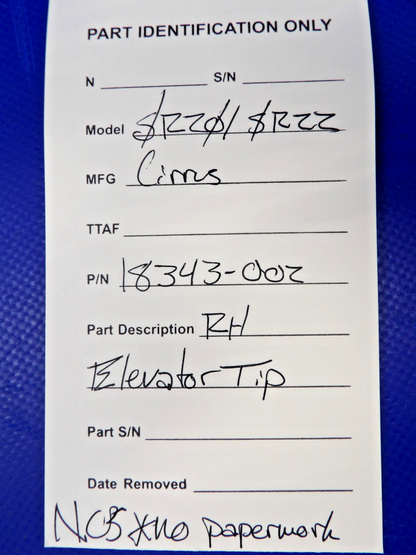 PART IDENTIFICATION ONLY
N S/N
Model SR20/SR22
MFG Cirrus
TTAF
P/N 18343-002
Part Description RH
Elevator Tip
Part S/N
Date Removed
NOS *no paperwork